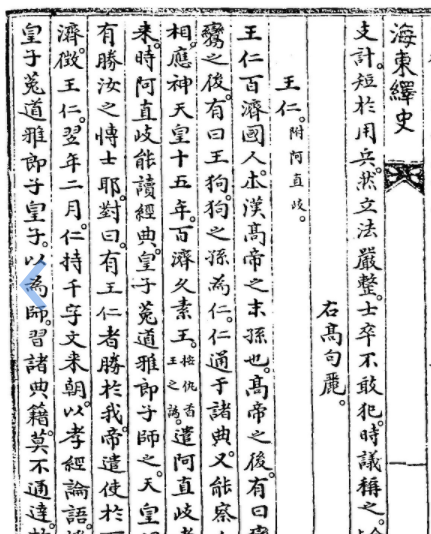 海東繹史
支計。短於用兵。然立法嚴整。士卒不敢犯。時議稱之。
右高句麗。
王仁。附阿直岐。
王仁百濟國人。夲漢高帝之末孫也。高帝之後。有曰
鸞之後。有曰王狗。狗之孫為仁。仁通于諸典。又能察
相。應神天皇十五年。百濟久素王。按仇首王之譌。遣阿直岐者
来。時阿直岐能讀經典。皇子菟道雅郎子師之。天皇
有勝汝之愽士耶。對曰。有王仁者勝於我。帝遣使於
濟。徵王仁。翌年二月。仁持千字文来朝。以孝經論語。
皇子菟道雅郎子皇子。以為師。習諸典籍。莫不通達。